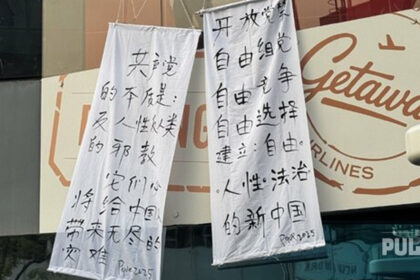 共产党
的本质是:
反人性人类
的邪教
它们必
将给中国
带来无尽的
灾难
2025
开放党禁
自由组党
自由竞争
自由选择
建立:自由.
人性:法治
的新中国
2025
Getaway
AIRLINES
PUL